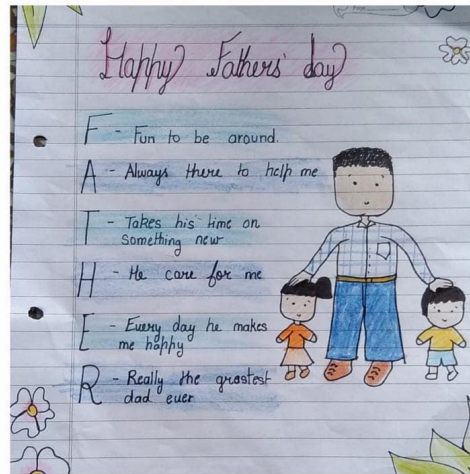 Happy Fathers' day
F - Fun to be around.
A - Always there to help me
T - Takes his time on
something new
H - He care for me
E - Every day he makes
me happy
R - Really the grastest
dad ever